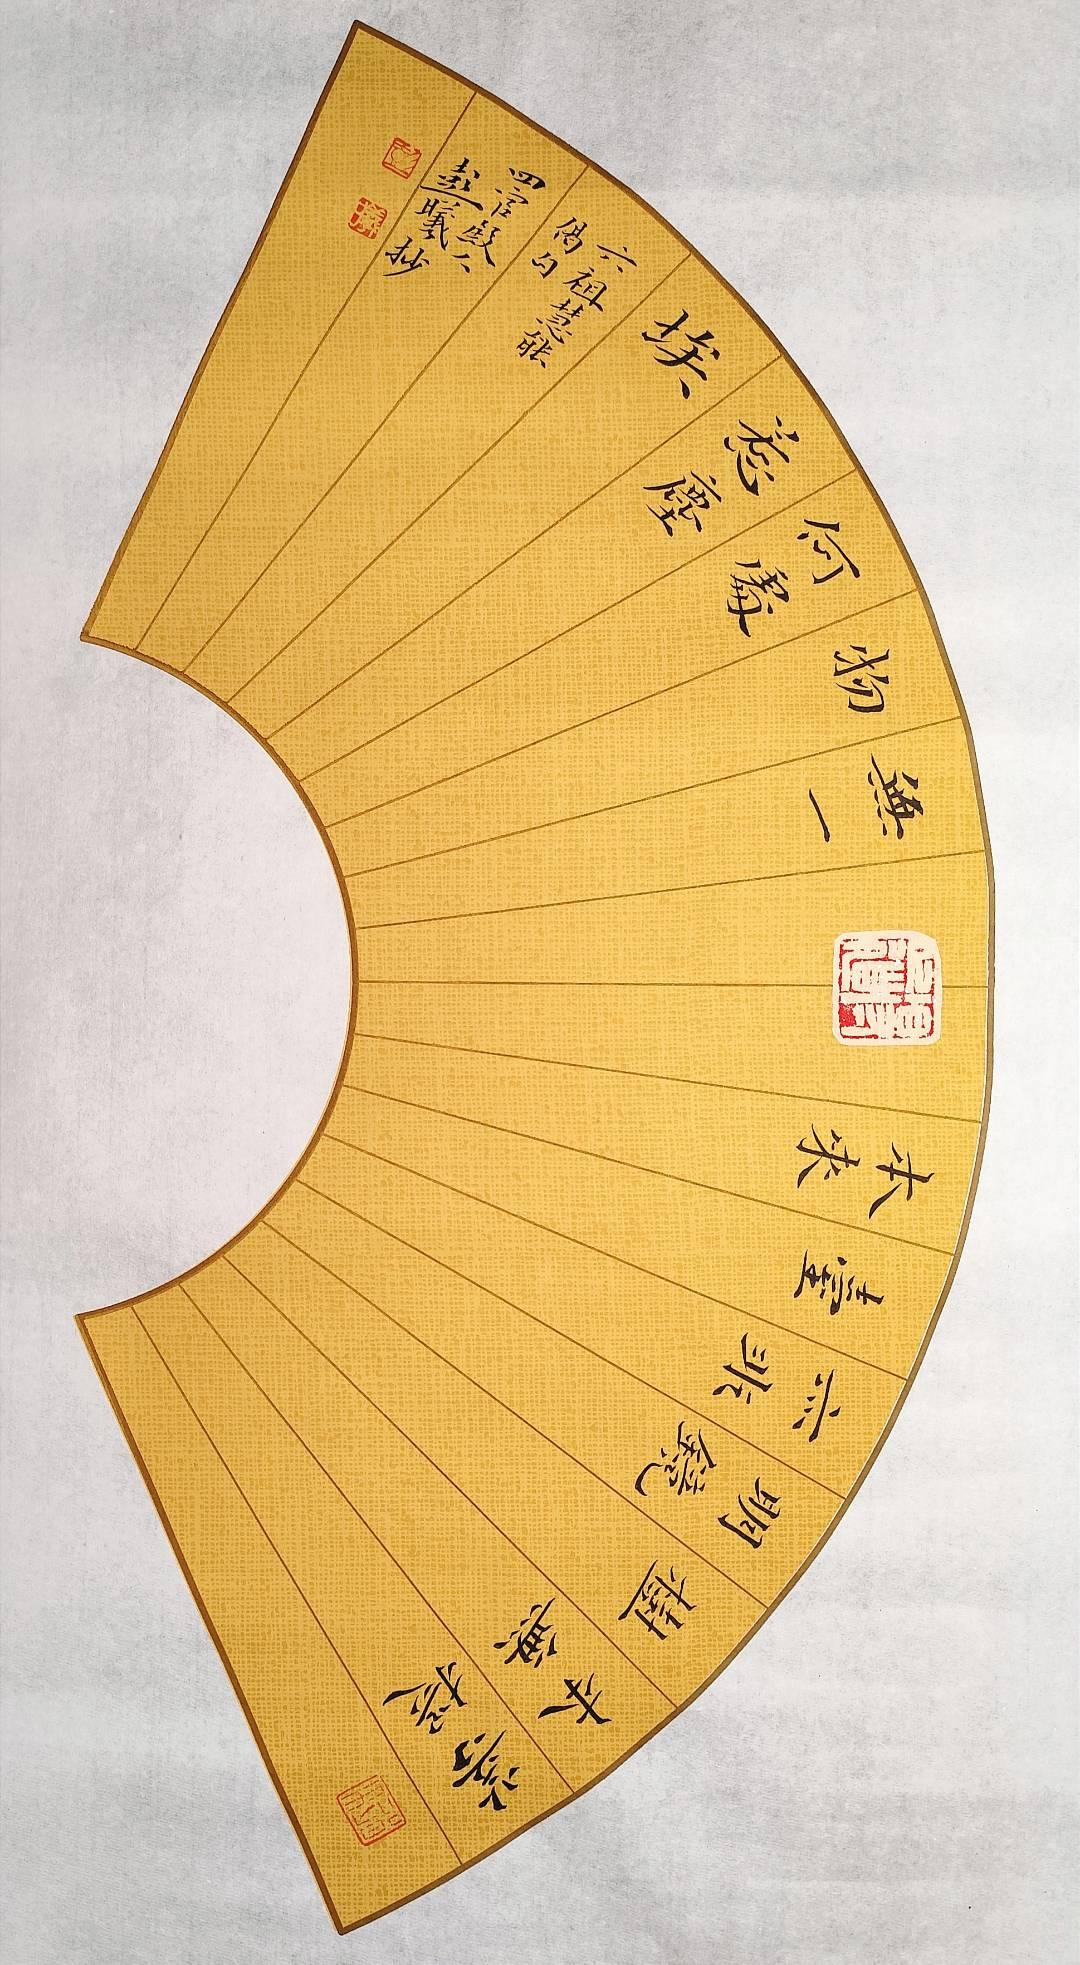 菩提
本無
樹
明鏡
亦非
臺
本來
無一
物
何處
惹塵
埃
六祖慧能
偈句
四殿人
曦抄